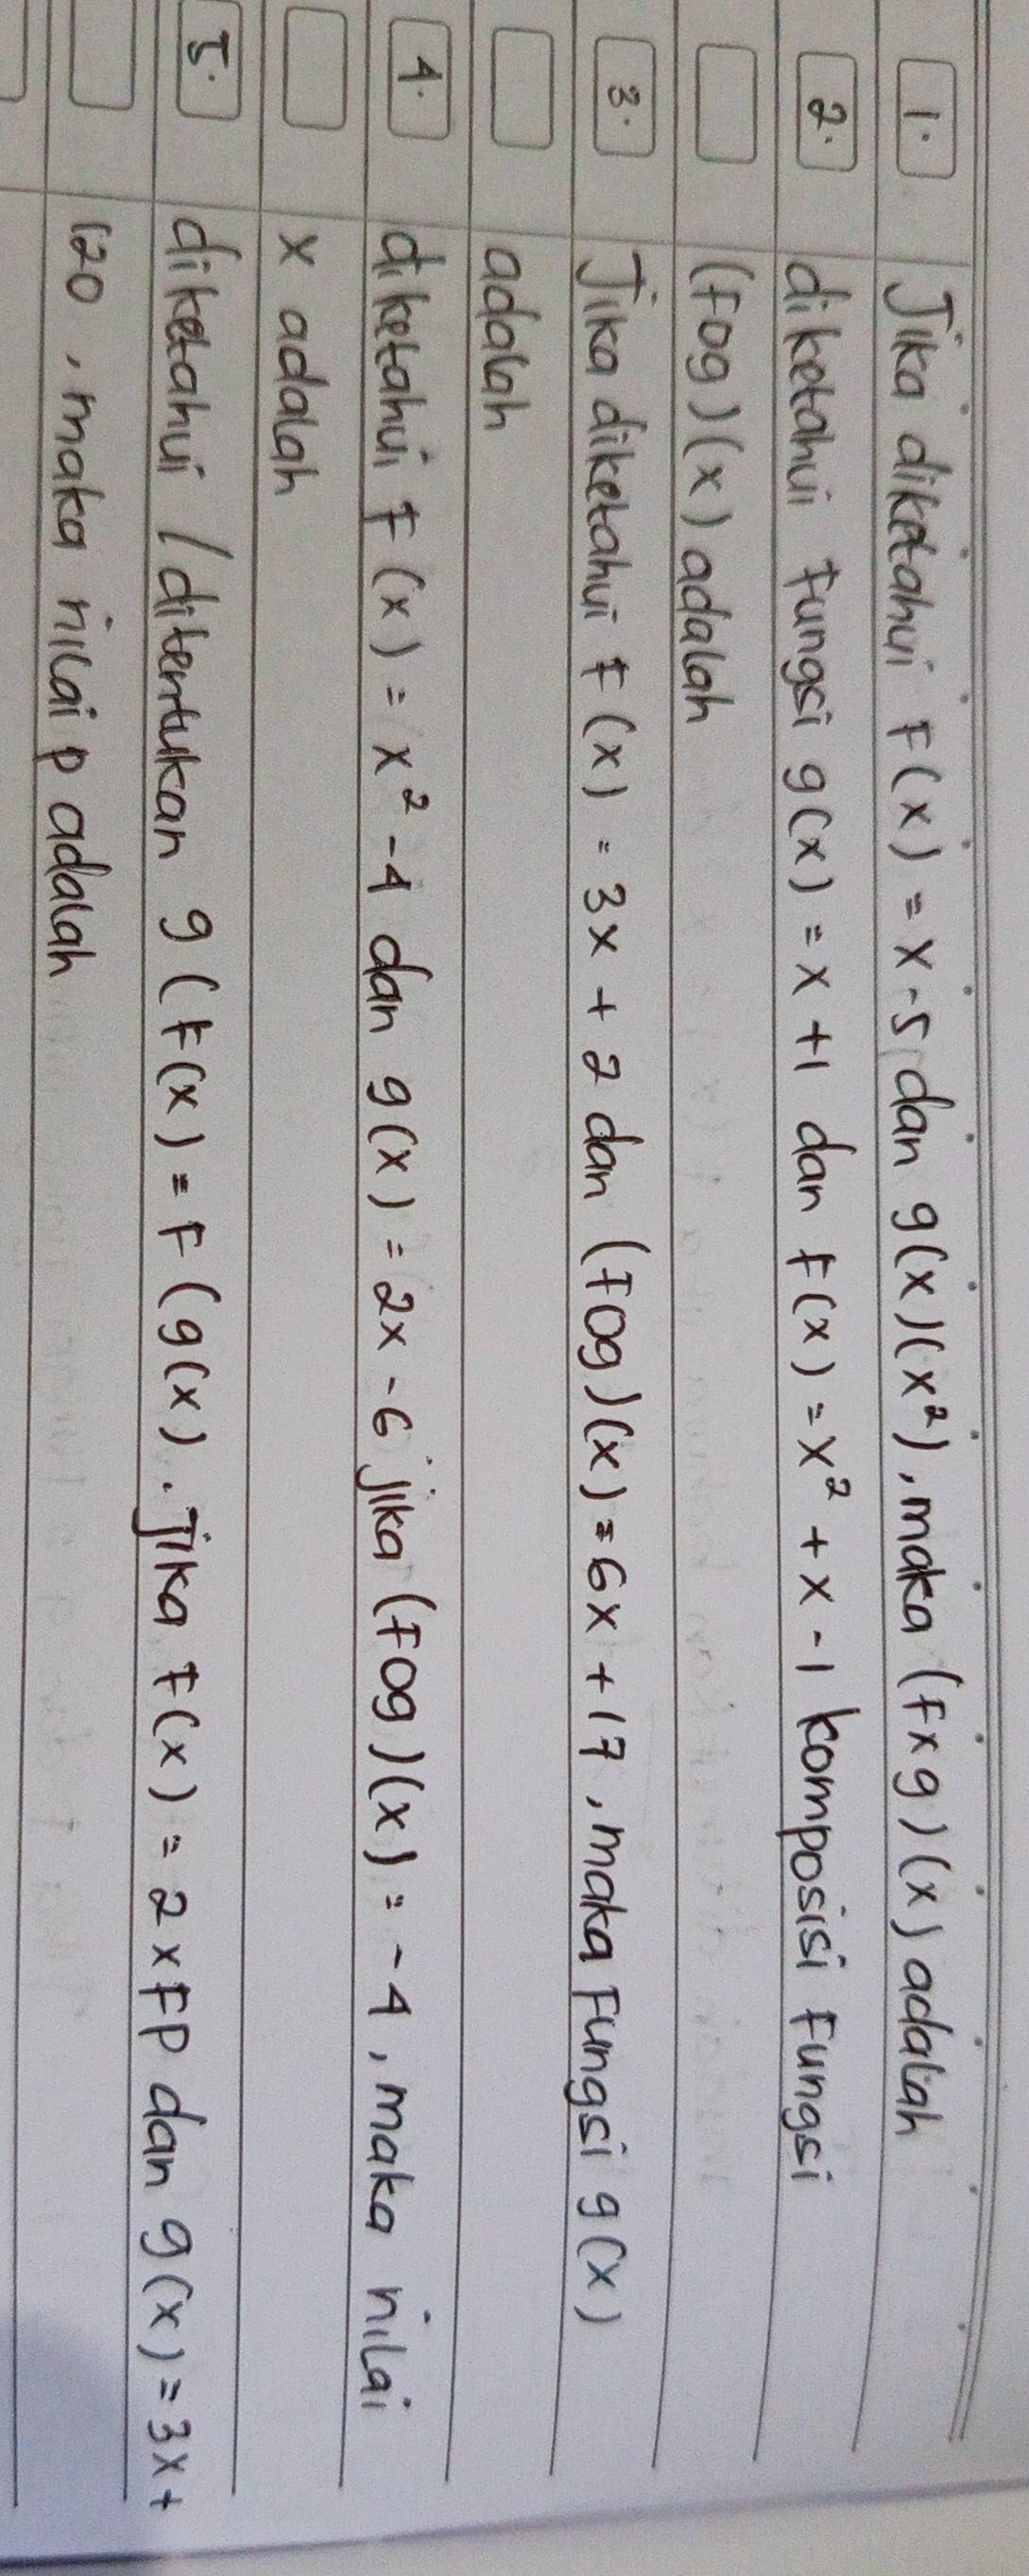 1. Jika diketahui F(x) = x - 5 dan g(x)(x²), maka (f x g)(x) adalah
2. diketahui fungsi g(x) = x + 1 dan f(x) = x² + x - 1 komposisi fungsi
(fog)(x) adalah
3. Jika diketahui f(x) = 3x + 2 dan (fog)(x) = 6x + 17, maka fungsi g(x)
adalah
4. diketahui f(x) = x² - 4 dan g(x) = 2x - 6 jika (fog)(x) = -4, maka nilai
x adalah
5. diketahui / ditentukan g(f(x) = F(g(x). Jika f(x) = 2xFP dan g(x) = 3x +
120, maka nilai p adalah